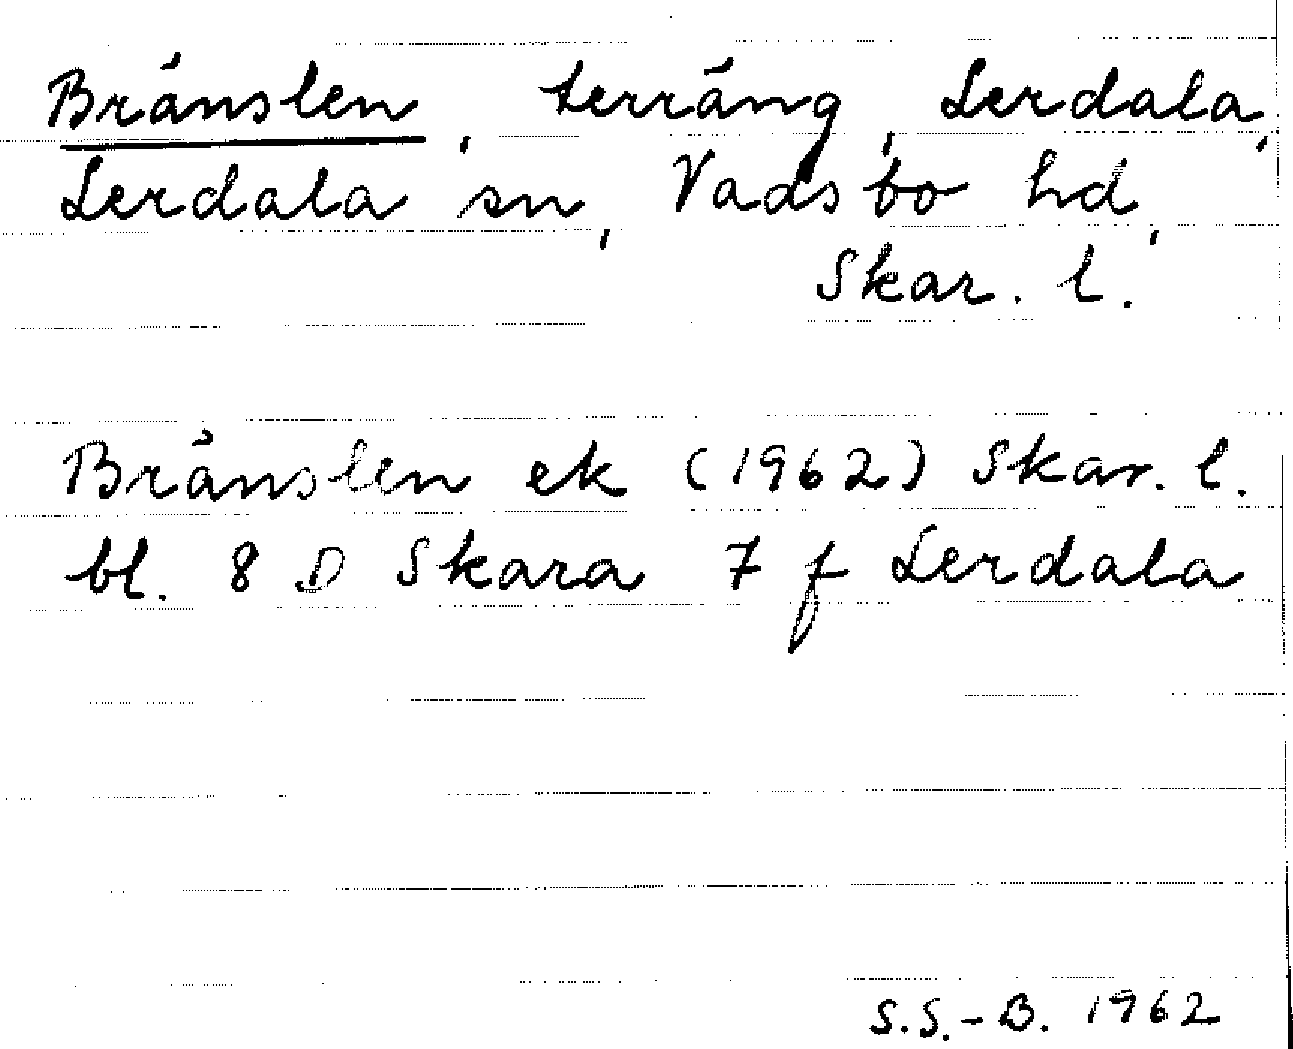 Bränslen, terräng, Lerdala,
Lerdala sn, Vadsbo hd,
Skar. l.
Bränslen ek (1962) Skar. l.
bl. 8 D Skara 7 f Lerdala
S.S.-B. 1962